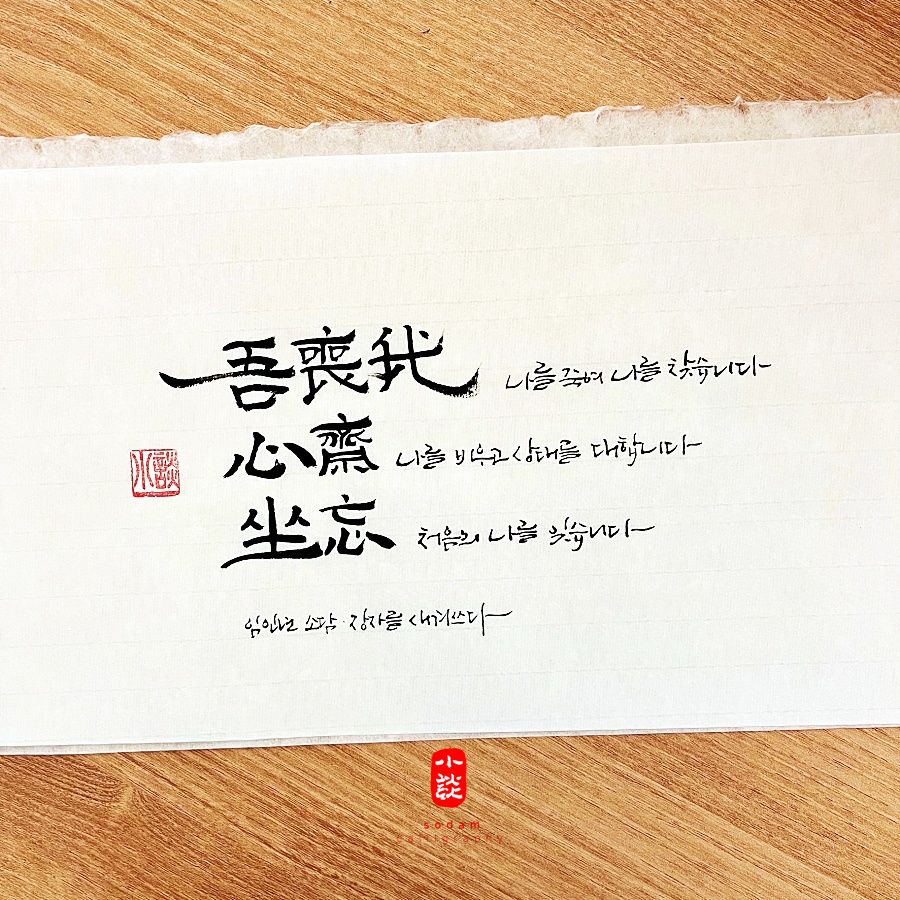 吾喪我 나를 죽여 나를 찾습니다
心齋 나를 비우고 상태를 대합니다
坐忘 처음의 나를 잊습니다
임인년 소담·장자를 새겨쓰다
小談
小談
sodam
calligraphy